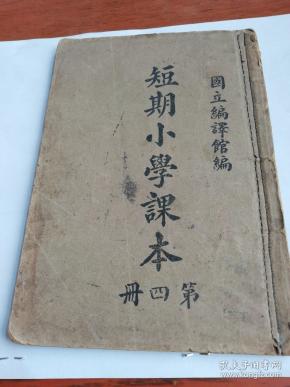 國立編譯館編
短期小學課本
第四冊
孔夫子旧书网